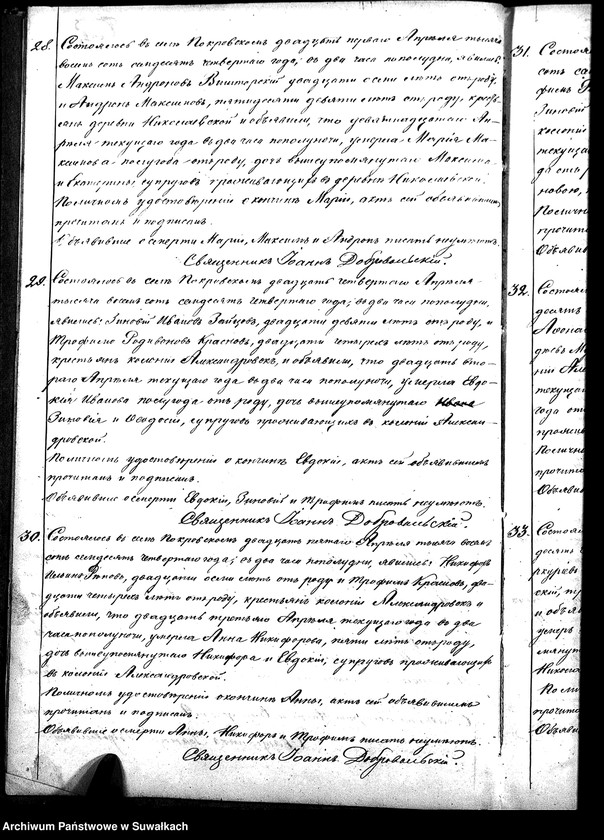 28. Состоялось въ селѣ Покровскомъ двадцать перваго Апрѣля тысяча
восемь сотъ семдесятъ четвертаго года; въ два часа пополудни, явились
Максимъ Андроновъ двадцати осми лѣтъ отъ роду,
и Андронъ Максимовъ, пятидесяти девяти лѣтъ отъ роду, кресть-
яне деревни Николаевской и объявили, что девятнадцатаго Ап-
рѣля текущаго года въ два часа пополуночи, умерла Марія Ма-
ксимова полугода отъ роду, дочь вышеупомянутаго Максима
и супруговъ проживающихъ въ деревни Николаевской.
По личномъ удостовѣреніи о кончинѣ Маріи, актъ сей объявившимъ
прочитанъ и подписанъ.
Объявившіе о смерти Маріи, Максимъ и Андронъ писать неумѣютъ.
Священникъ Іоаннъ Добровольскій.
29. Состоялось въ селѣ Покровскомъ двадцать четвертаго Апрѣля
тысяча восемь сотъ семдесятъ четвертаго года; въ два часа пополудни,
явились: Зиновій Ивановъ Зайцовъ, двадцати девяти лѣтъ отъ роду, и
Трофимъ Родивоновъ Красновъ, двадцати четырехъ лѣтъ отъ роду,
крестьяне колоніи Александровскъ, и объявили, что двадцать вто-
раго Апрѣля текущаго года въ два часа пополуночи, умерла Евдо-
кія Иванова полугода отъ роду, дочь вышеупомянутаго
Зиновія и Ѳеодосіи, супруговъ проживающихъ въ колоніи Алексан-
дровской.
По личномъ удостовѣреніи о кончинѣ Евдокіи, актъ сей объявившимъ
прочитанъ и подписанъ.
Объявившіе о смерти Евдокіи, Зиновій и Трофимъ писать неумѣютъ.
Священникъ Іоаннъ Добровольскій.
30. Состоялось въ селѣ Покровскомъ двадцать пятаго Апрѣля тысяча восемь
сотъ семдесятъ четвертаго года; въ два часа пополудни, явились: Никифоръ
двадцати осми лѣтъ отъ роду и Трофимъ Красновъ, два-
дцати четырехъ лѣтъ отъ роду, крестьяне колоніи Александровскъ и
объявили, что двадцать третьяго Апрѣля текущаго года въ два
часа пополуночи, умерла Анна Никифорова, пяти лѣтъ отъ роду,
дочь вышеупомянутаго Никифора и Евдокіи, супруговъ проживающихъ
въ колоніи Александровской.
По личномъ удостовѣреніи о кончинѣ Анны, актъ сей объявившимъ
прочитанъ и подписанъ.
Объявившіе о смерти Анны, Никифоръ и Трофимъ писать неумѣютъ.
Священникъ Іоаннъ Добровольскій.
31. Состоял
сотъ се
Зиновій
колоніи
текуща
новою,
По лично
прочита
Объявив
32. Состоял
десятъ
текуща
года от
По лично
прочита
Объявив
33. Состоял
десятъ
и объя
умер
мянут
Никола
По ли
прочита
Объяв
Archiwum Państwowe w Suwałkach